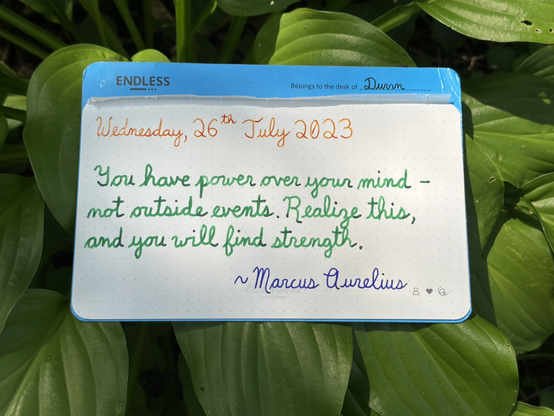 ENDLESS
Belongs to the desk of Dunn
Wednesday, 26th July 2023
You have power over your mind –
not outside events. Realize this,
and you will find strength.
~ Marcus Aurelius